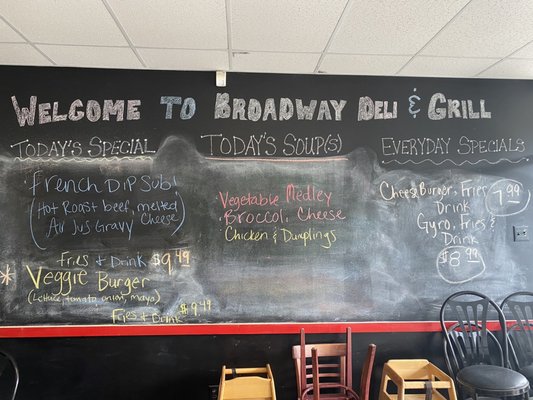 WELCOME TO BROADWAY DELI & GRILL
TODAY'S SPECIAL
French Dip Sub!
(Hot Roast beef, melted
Au Jus Gravy Cheese)
Fries + Drink $9.49
* Veggie Burger
(Lettuce, tomato onion, mayo)
Fries + Drink $9.49
TODAY'S SOUP(S)
Vegetable Medley
Broccoli Cheese
Chicken & Dumplings
EVERYDAY SPECIALS
CheeseBurger, Fries 7.99
Drink
Gyro, Fries
& Drink
$8.99